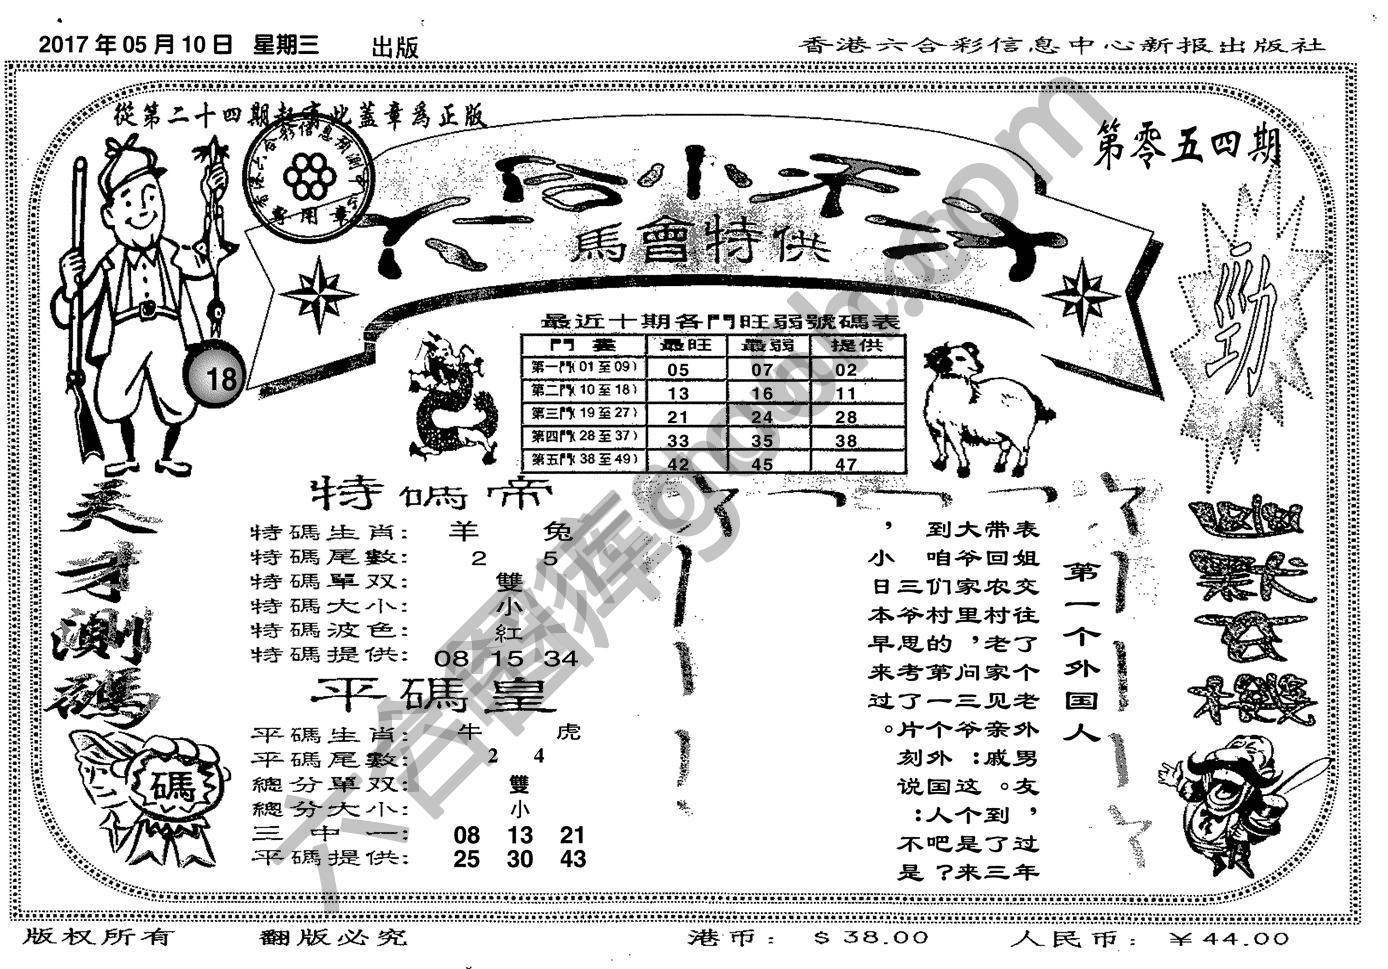 2017年05月10日 星期三 出版
香港六合彩信息中心新报出版社
從第二十四期起寄此蓋章為正版
專用章
第零五四期
六合小天
馬會特供
勁
18
最近十期各門旺弱號碼表
門書 最旺 最弱 提供
第一門(01至09) 05 07 02
第二門(10至18) 13 16 11
第三門(19至27) 21 24 28
第四門(28至37) 33 35 38
第五門(38至49) 42 45 47
天才測碼
碼
特碼帝
特碼生肖: 羊 兔
特碼尾數: 2 5
特碼單双: 雙
特碼大小: 小
特碼波色: 紅
特碼提供: 08 15 34
平碼皇
平碼生肖: 牛 虎
平碼尾數: 2 4
總分單双: 雙
總分大小: 小
三中一: 08 13 21
平碼提供: 25 30 43
第一个外国人
表姐交往了个老外男友，过年
带回农村老家见亲戚。到了三
大爷家里，问三爷：这个是来
到咱们村的第一个外国人吧？
三爷思考了片刻说：不是
，小日本早来过。
版权所有 翻版必究 港币：$38.00 人民币：￥44.00
六合图库